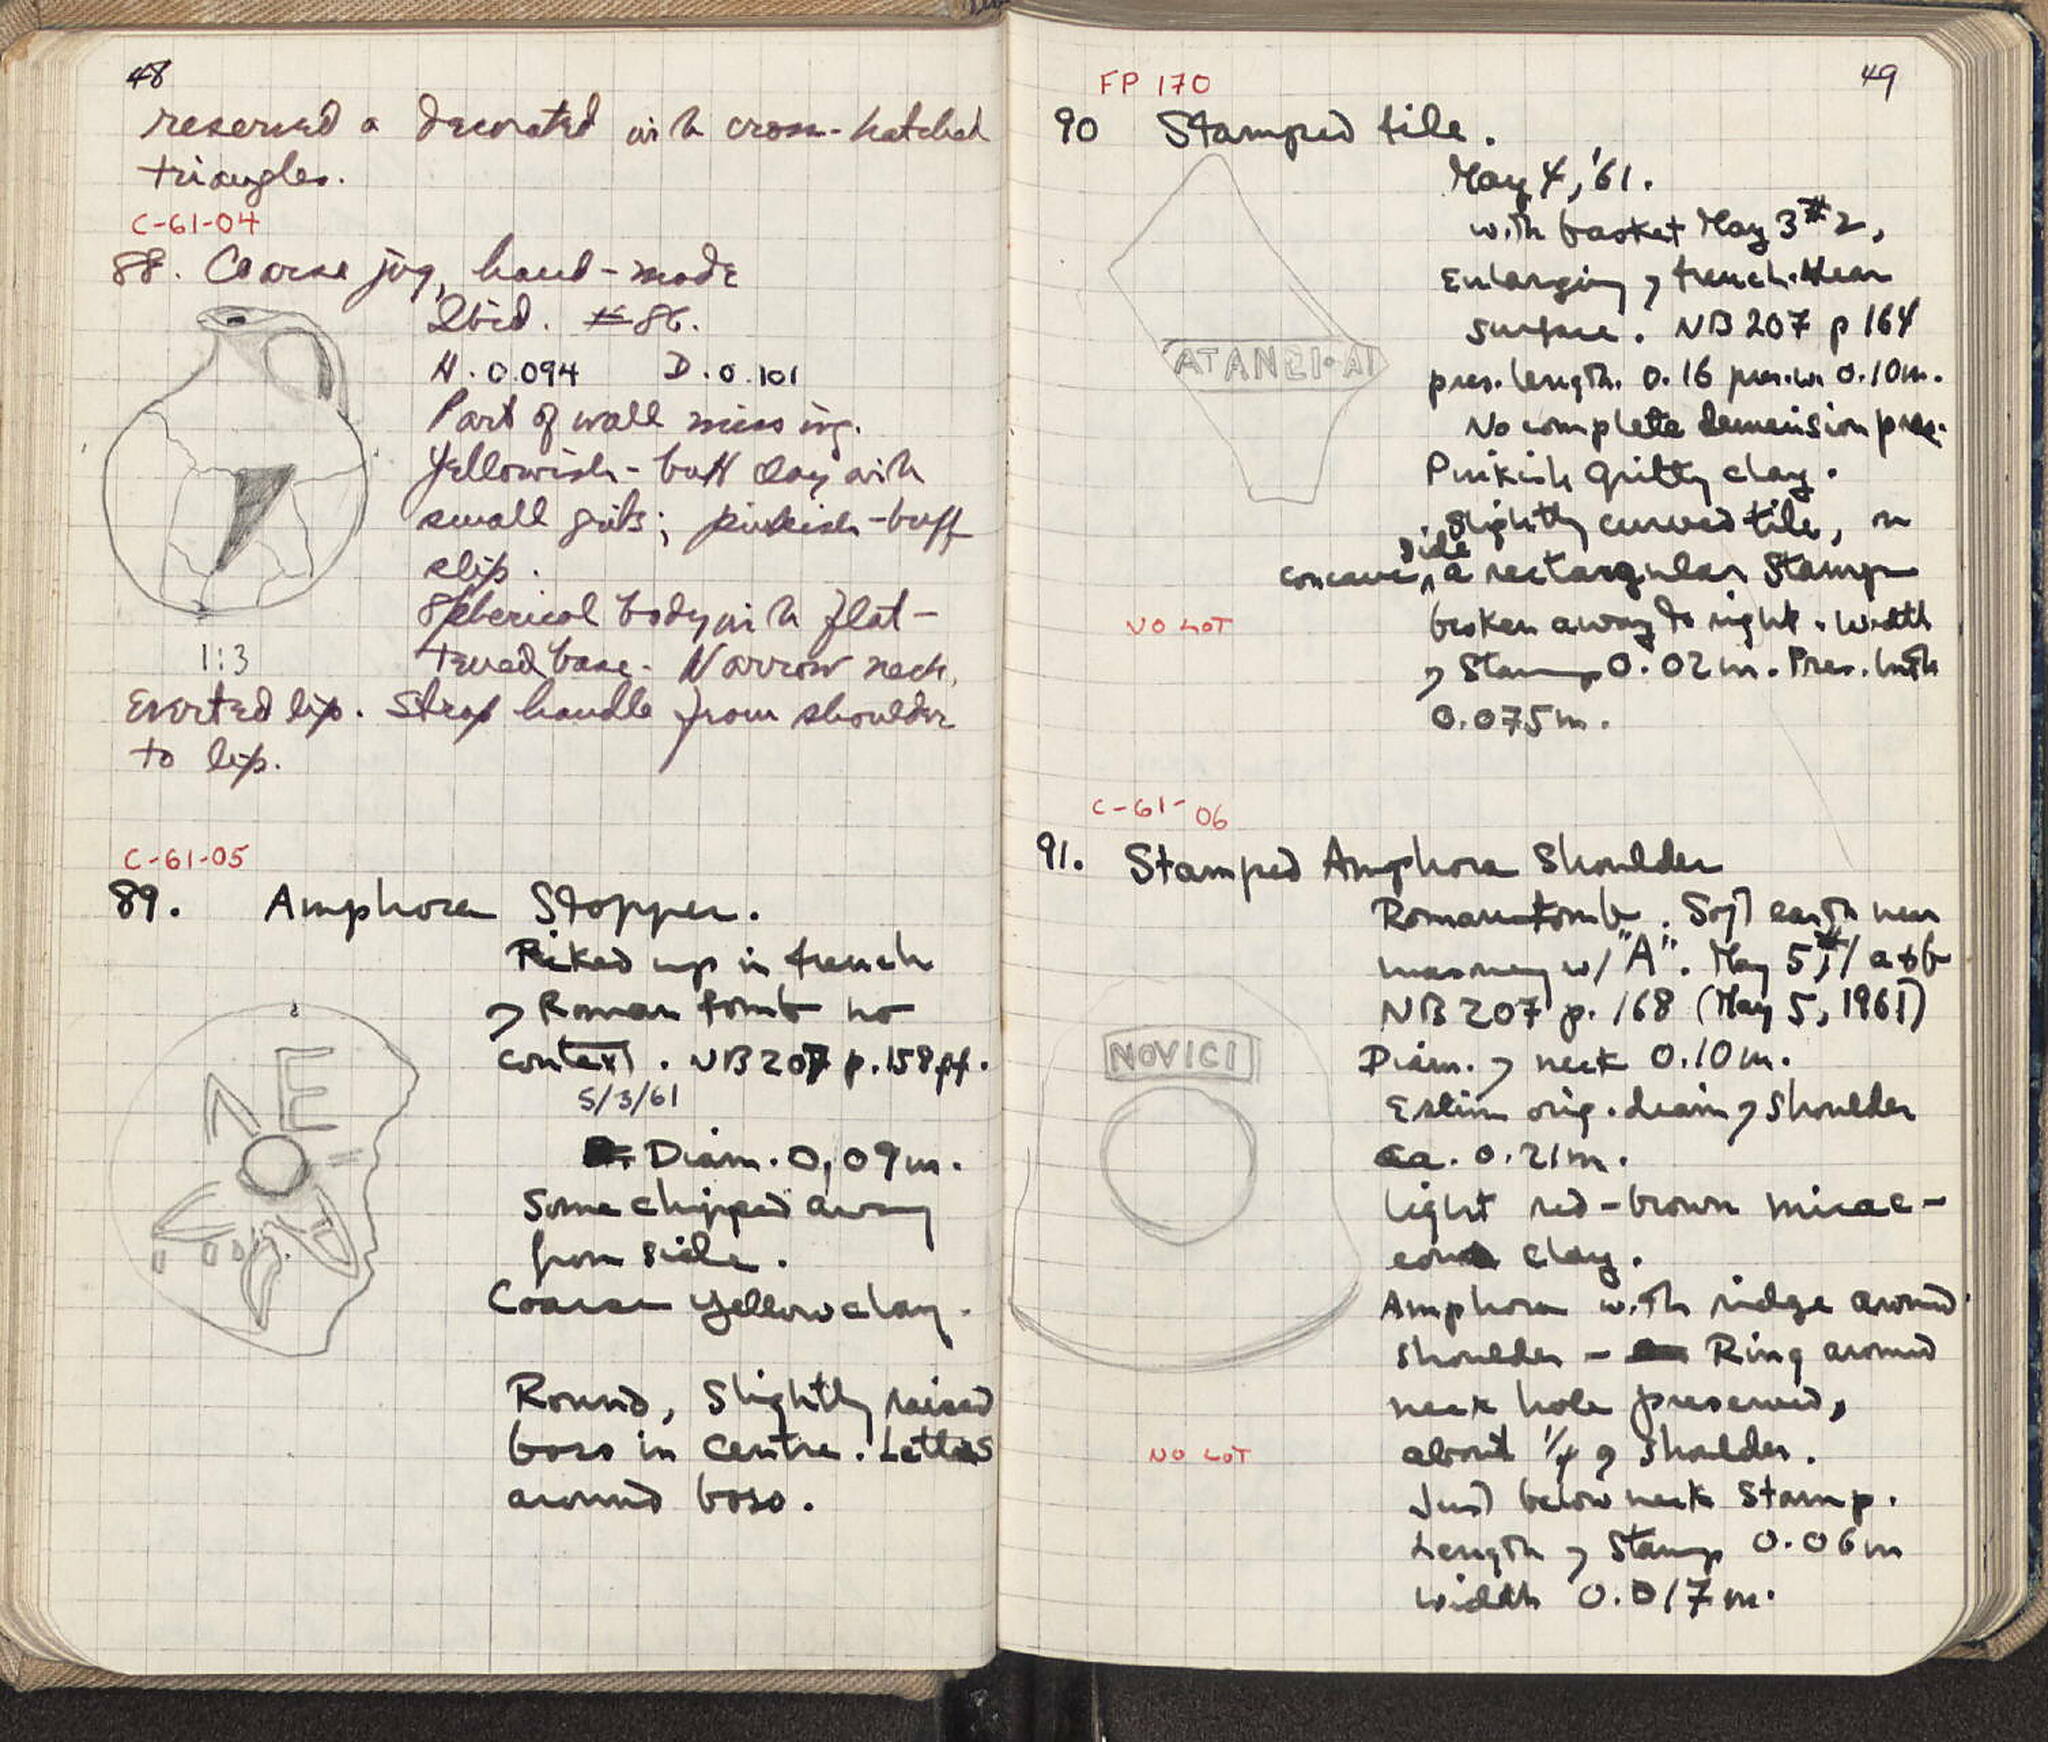 48
reserved & decorated with cross-hatched
triangles.
C-61-04
88. Coarse jug, hand-made
Ibid. #86.
H. 0.094 D. 0.101
Part of wall missing.
Yellowish-buff clay with
small grits; pinkish-buff
slip.
Spherical body with flat-
tened base. Narrow neck,
1:3
Everted lip. Strap handle from shoulder
to lip.
C-61-05
89. Amphora Stopper.
Picked up in trench
of Roman tomb no
context. NB 207 p. 158 ff.
5/3/61
Diam. 0,09m.
Some chipped away
from side.
Coarse yellow clay.
ΛE
Round, slightly raised
boss in centre. Letters
around boss.
FP 170
49
90 Stamped tile.
May 4, '61.
with basket May 3 #2,
Enlarging of trench. Near
surface. NB 207 p 164
ATANΣI·AI
pres. length. 0.16 pres. w. 0.10m.
No complete demension pres.
Pinkish gritty clay.
Slightly curved tile, on
concave side a rectangular Stamp
NO LOT
broken away to right. Width
of Stamp 0.02m. Pres. lnth
0.075m.
C-61-06
91. Stamped Amphora Shoulder
Roman tomb. Soft earth near
masonry w/ "A". May 5, #1 a+b
NB 207 p. 168 (May 5, 1961)
NOVICI
Diam. of neck 0.10m.
Estim orig. diam of shoulder
ca. 0.21m.
light red-brown micac-
eous clay.
Amphora with ridge around
shoulder - Ring around
neck hole preserved,
NO LOT
about 1/4 of shoulder.
Just below neck stamp.
Length of Stamp 0.06m
width 0.017m.